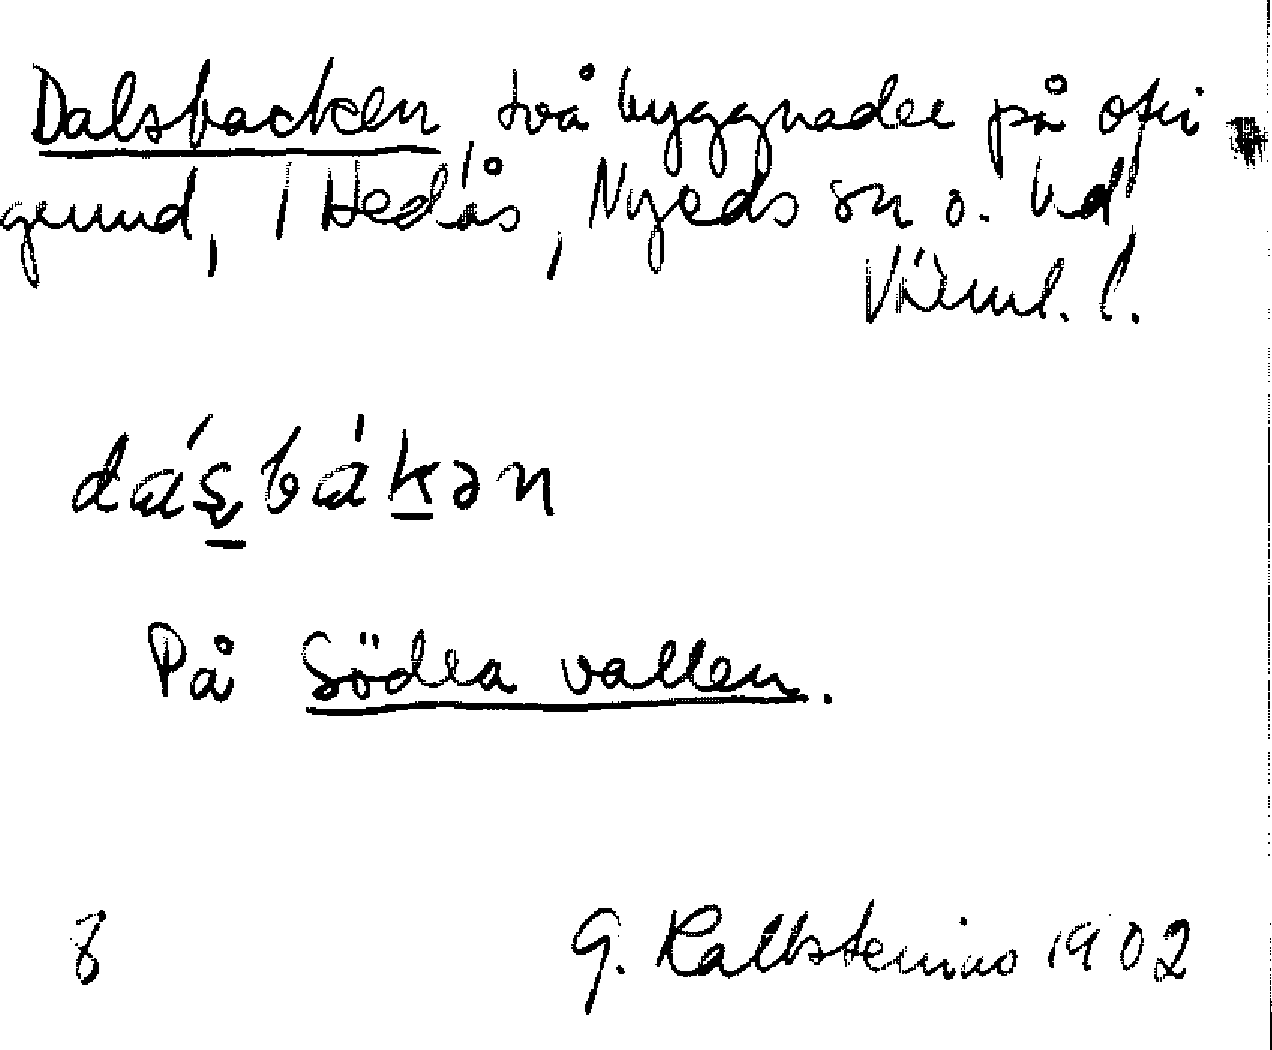 Dalsbacken, två byggnader på ofri
grund, 1 Hedås, Nyeds sn o. hd
Värml. l.
dásbákən
På Södra vallen.
8 G. Kallstenius 1902